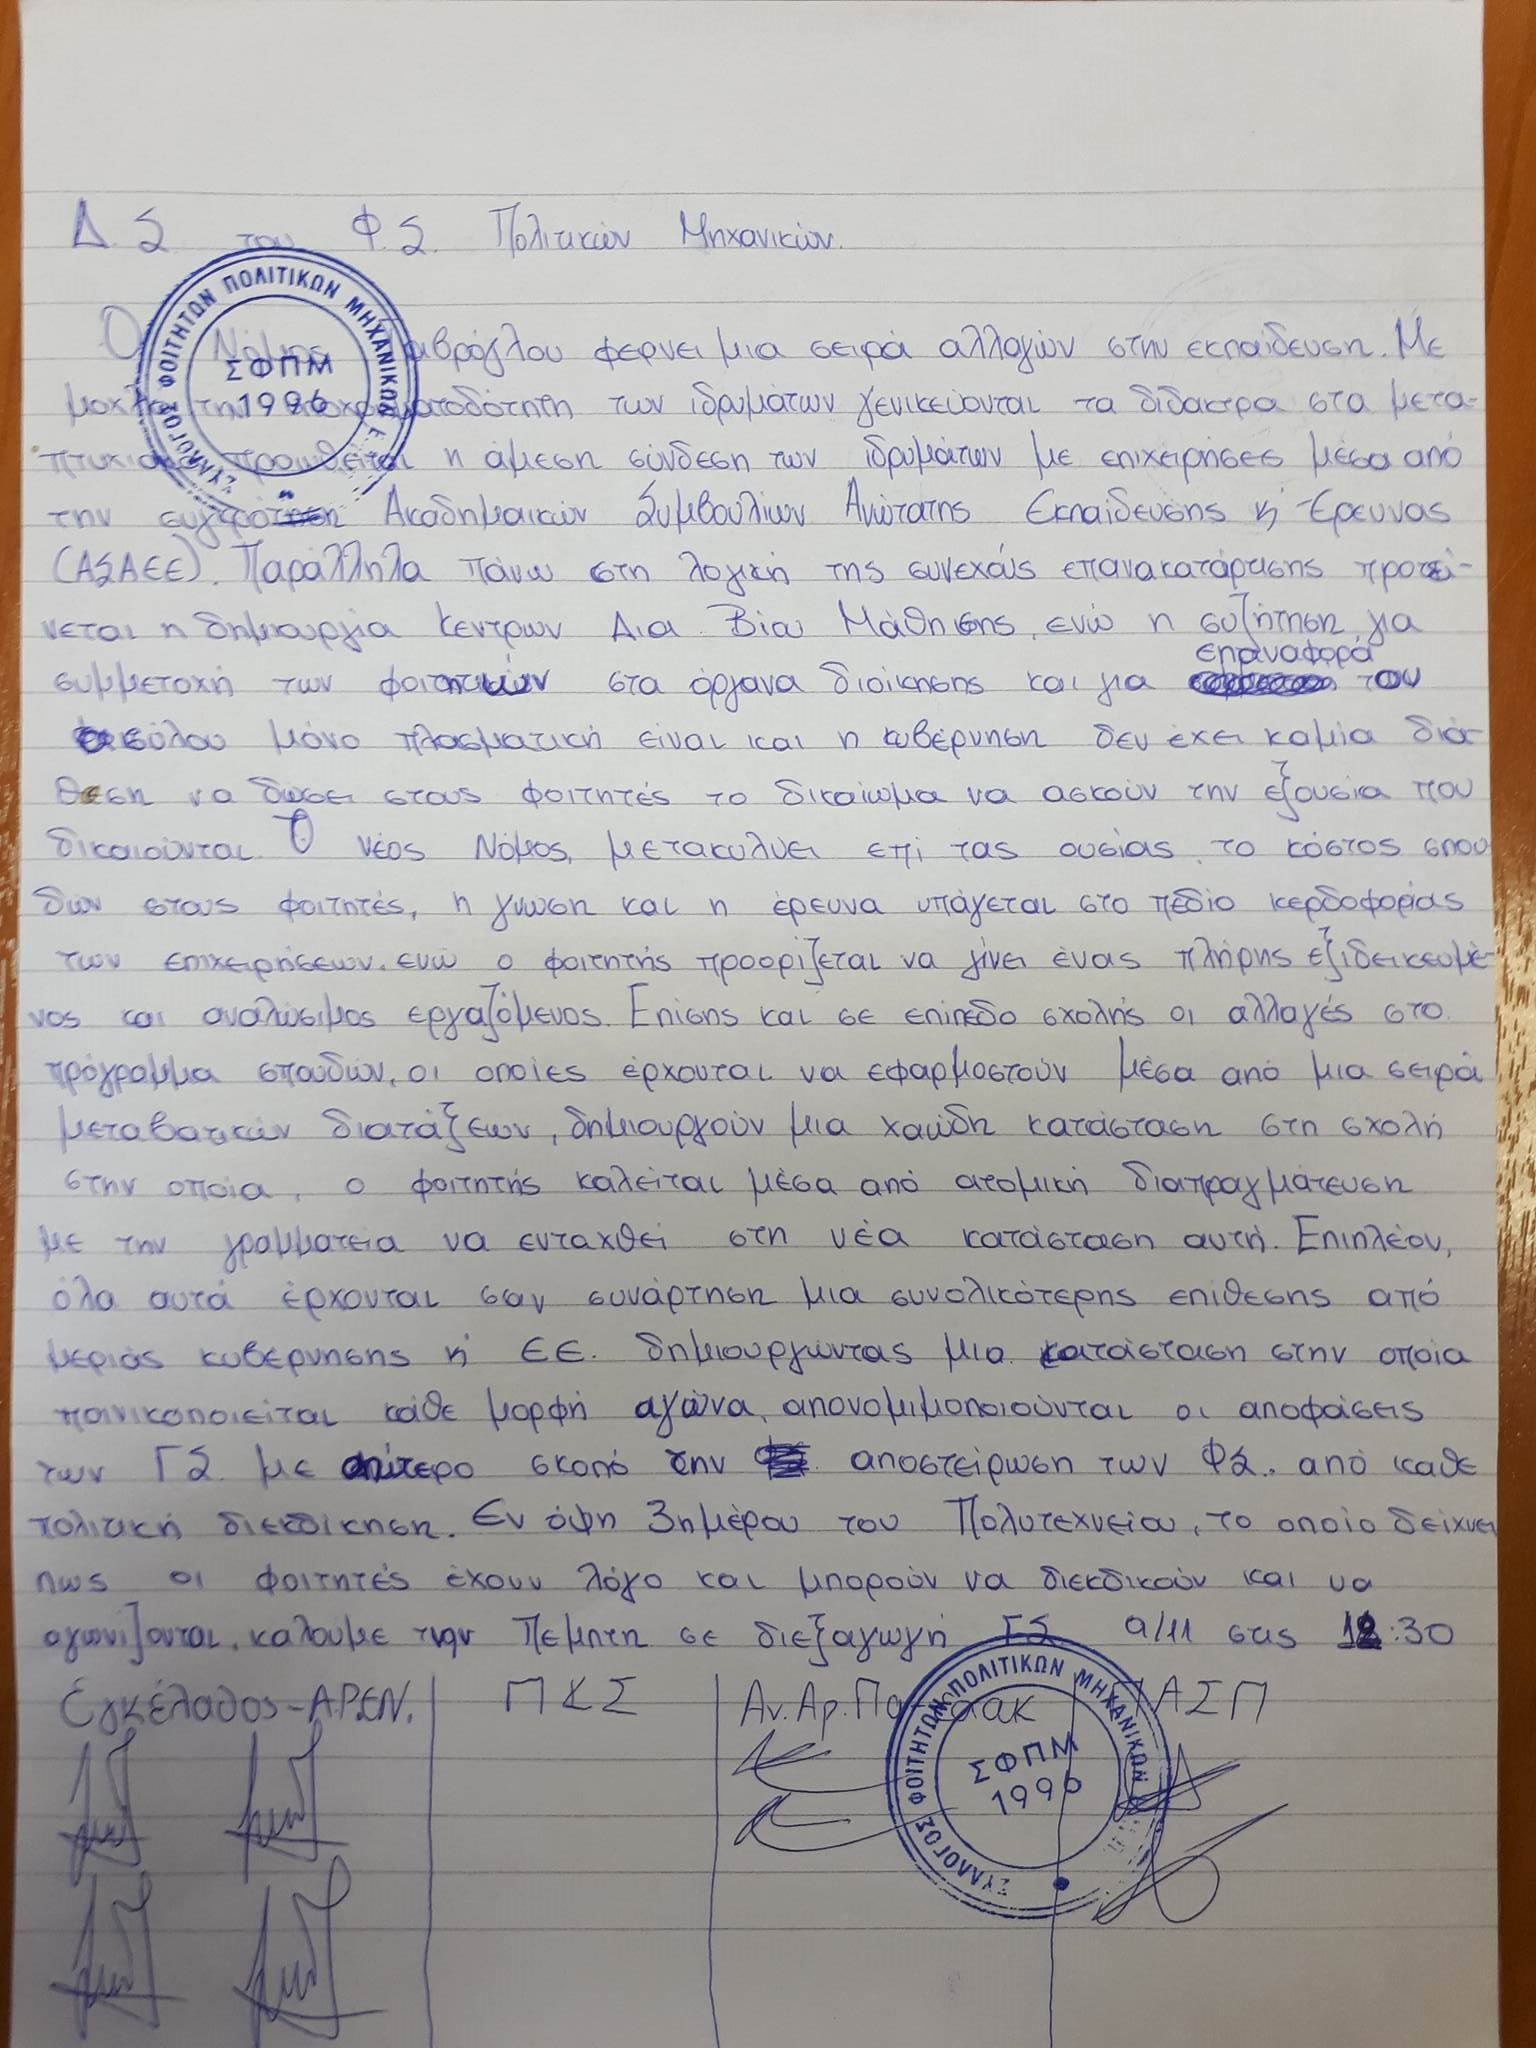 Δ.Σ του Φ.Σ. Πολιτικών Μηχανικών.
ΣΥΛΛΟΓΟΣ ΦΟΙΤΗΤΩΝ ΠΟΛΙΤΙΚΩΝ ΜΗΧΑΝΙΚΩΝ Ε.
ΣΦΠΜ
1996
Ο Νόμος Γαβρόγλου φέρνει μια σειρά αλλαγών στην εκπαίδευση. Με
μοχλό την υποχρηματοδότηση των ιδρυμάτων γενικεύονται τα δίδακτρα στα μετα-
πτυχιακά προωθείται η άμεση σύνδεση των ιδρυμάτων με επιχειρήσεις μέσα από
την συγκρότηση Ακαδημαικών Συμβουλίων Ανώτατης Εκπαίδευσης κ' Έρευνας
(ΑΣΑΕΕ). Παράλληλα πάνω στη λογική της συνεχούς επανακατάρτισης προτεί-
νεται η δημιουργία Κέντρων Δια Βίου Μάθησης, ενώ η συζήτηση για
επαναφορά
συμμετοχή των φοιτητών στα όργανα διοίκησης και για του
ασύλου μόνο πλασματική είναι και η κυβέρνηση δεν έχει καμία διά-
θεση να δώσει στους φοιτητές το δικαίωμα να ασκούν την εξουσία που
δικαιούνται. Ο νέος Νόμος, μετακυλύει επί τας ουσίας, το κόστος σπου
δών στους φοιτητές, η γνώση και η έρευνα υπάγεται στο πεδίο κερδοφορίας
των επιχειρήσεων, ενώ ο φοιτητής προορίζεται να γίνει ένας πλήρης εξιδεικευμέ-
νος και αναλώσιμος εργαζόμενος. Επίσης και σε επίπεδο σχολής οι αλλαγές στο
πρόγραμμα σπουδών, οι οποίες έρχονται να εφαρμοστούν μέσα από μια σειρά
μεταβατικών διατάξεων, δημιουργούν μια χαώδη κατάσταση στη σχολή
στην οποία, ο φοιτητής καλείται μέσα από ατομική διαπραγμάτευση
με την γραμματεία να ενταχθεί στη νέα κατάσταση αυτή. Επιπλέον,
όλα αυτά έρχονται σαν συνάρτηση μια συνολικότερης επίθεσης από
μεριάς κυβέρνησης κ' ΕΕ. δημιουργώντας μια κατάσταση στην οποία
ποινικοποιείται κάθε μορφή αγώνα, απονομιμοποιούνται οι αποφάσεις
των ΓΣ. με απώτερο σκοπό την αποστείρωση των ΦΣ. από κάθε
πολιτική διεκδίκηση. Εν όψη 3ημέρου του Πολυτεχνείου, το οποίο δείχνει
πως οι φοιτητές έχουν λόγο και μπορούν να διεκδικούν και να
αγωνίζονται, καλούμε την Πέμπτη σε διεξαγωγή ΓΣ 9/11 στις 12:30
Εγκέλαθος-ΑΡ.ΕΝ. ΠΚΣ Αν.Αρ. ΑΣΠ
ΣΥΛΛΟΓΟΣ ΦΟΙΤΗΤΩΝ ΠΟΛΙΤΙΚΩΝ ΜΗΧΑΝΙΚΩΝ
ΣΦΠΜ
1996